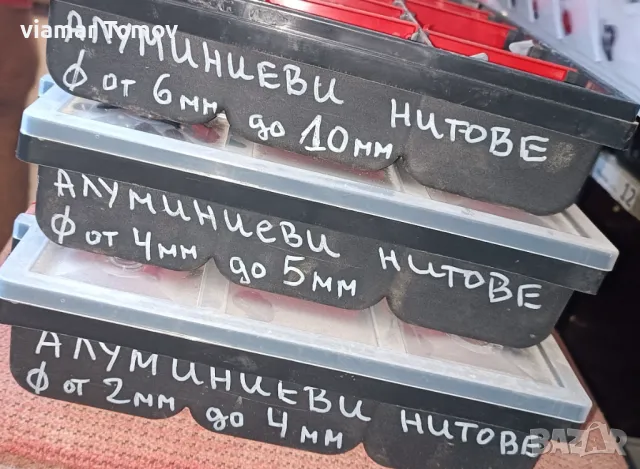 viamar Tomov
АЛУМИНИЕВИ НИТОВЕ
ф от 6мм до 10мм
АЛУМИНИЕВИ НИТОВЕ
ф от 4мм до 5мм
АЛУМИНИЕВИ НИТОВЕ
ф от 2мм до 4мм
12
BAZAR